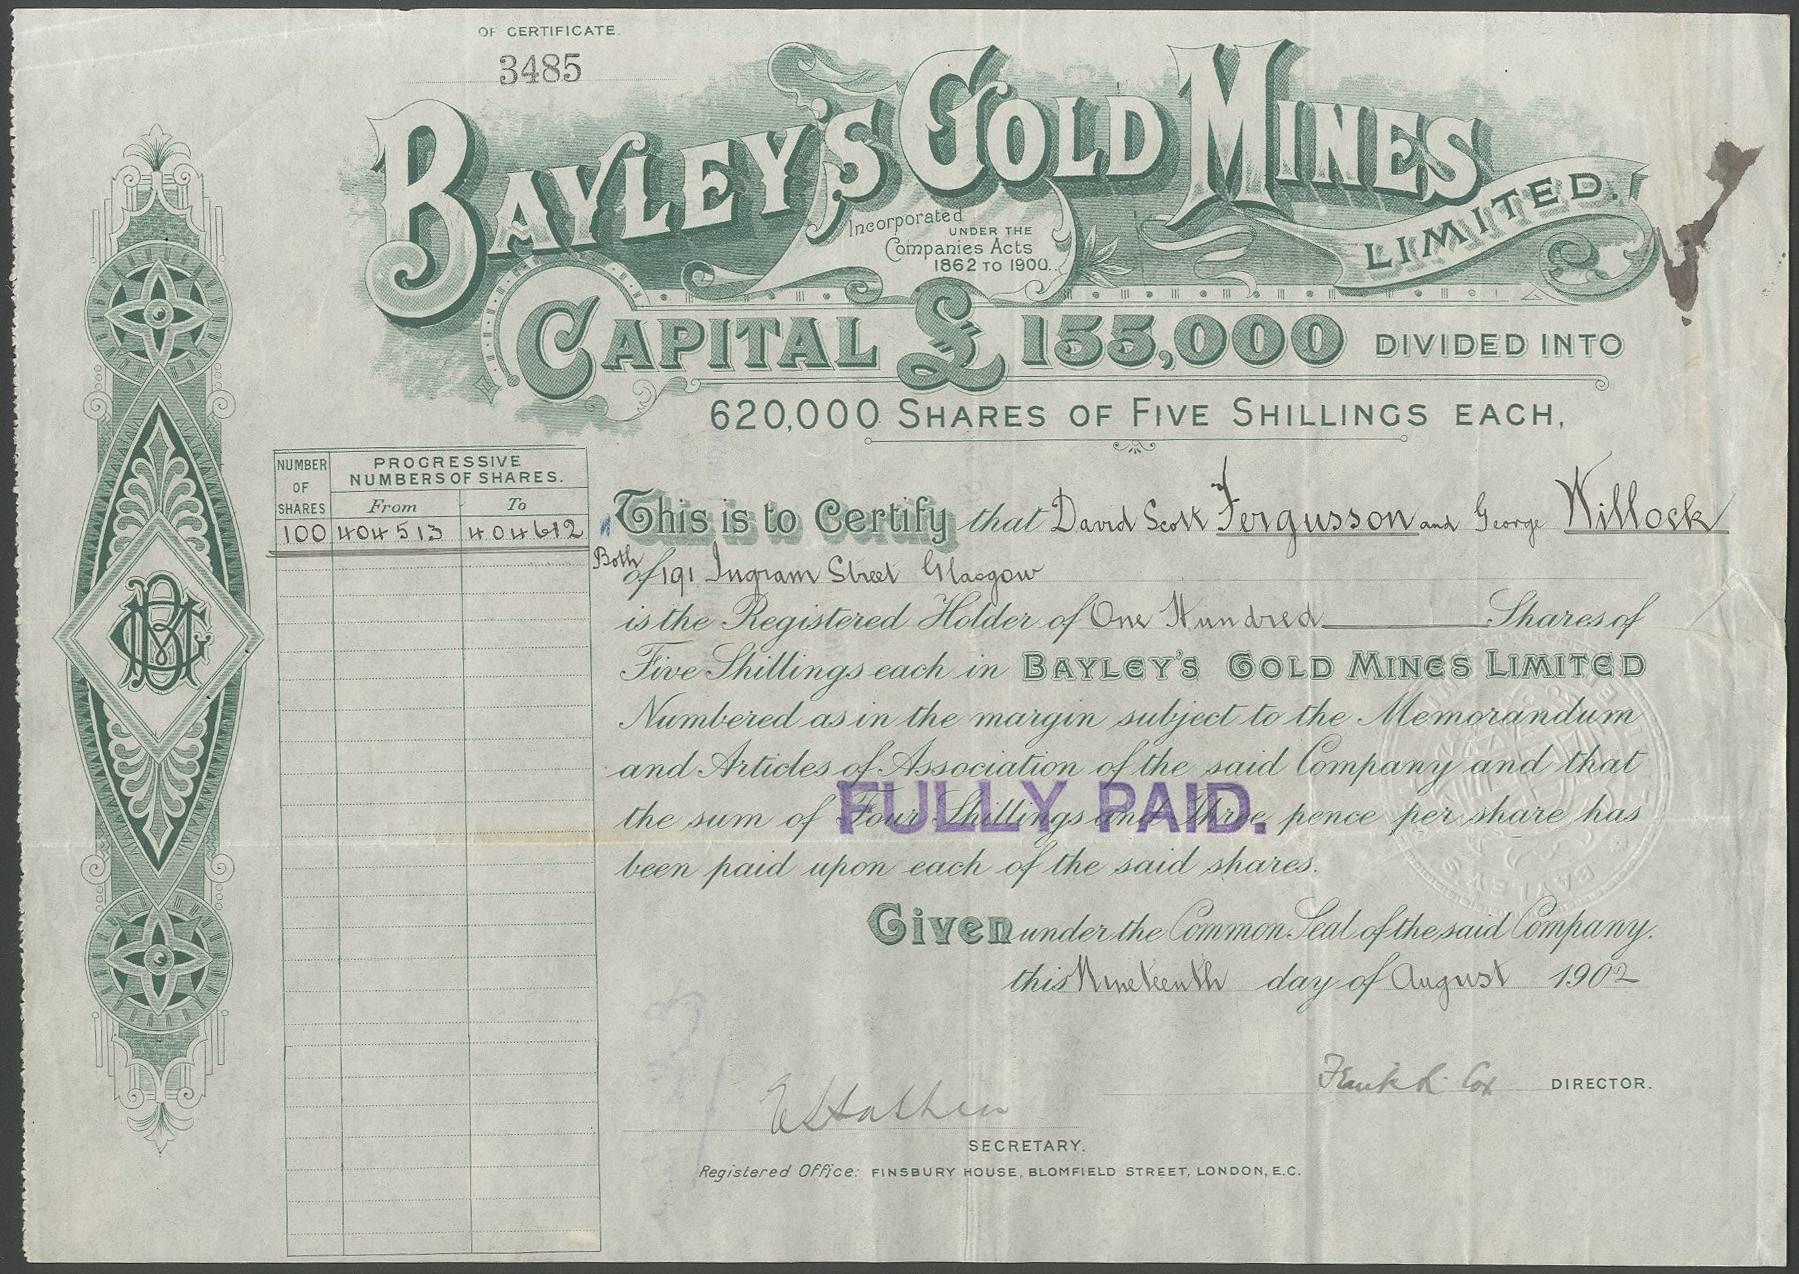 OF CERTIFICATE.
3485
BAYLEY'S GOLD MINES
LIMITED.
Incorporated
UNDER THE
Companies Acts
1862 TO 1900.
CAPITAL £ 155,000 DIVIDED INTO
620,000 SHARES OF FIVE SHILLINGS EACH,
NUMBER OF SHARES
PROGRESSIVE NUMBERS OF SHARES.
From To
100 404513 404612
This is to Certify that David Scott Fergusson and George Willock
Both of 191 Ingram Street Glasgow
is the Registered Holder of One Hundred Shares of
Five Shillings each in BAYLEY'S GOLD MINES LIMITED
Numbered as in the margin subject to the Memorandum
and Articles of Association of the said Company and that
the sum of Four Shillings and Three pence per share has
FULLY PAID.
been paid upon each of the said shares.
Given under the Common Seal of the said Company.
this Nineteenth day of August 1902
BGM
BAYLEY'S
Frank R. Cox DIRECTOR.
SECRETARY.
Registered Office: FINSBURY HOUSE, BLOMFIELD STREET, LONDON, E.C.